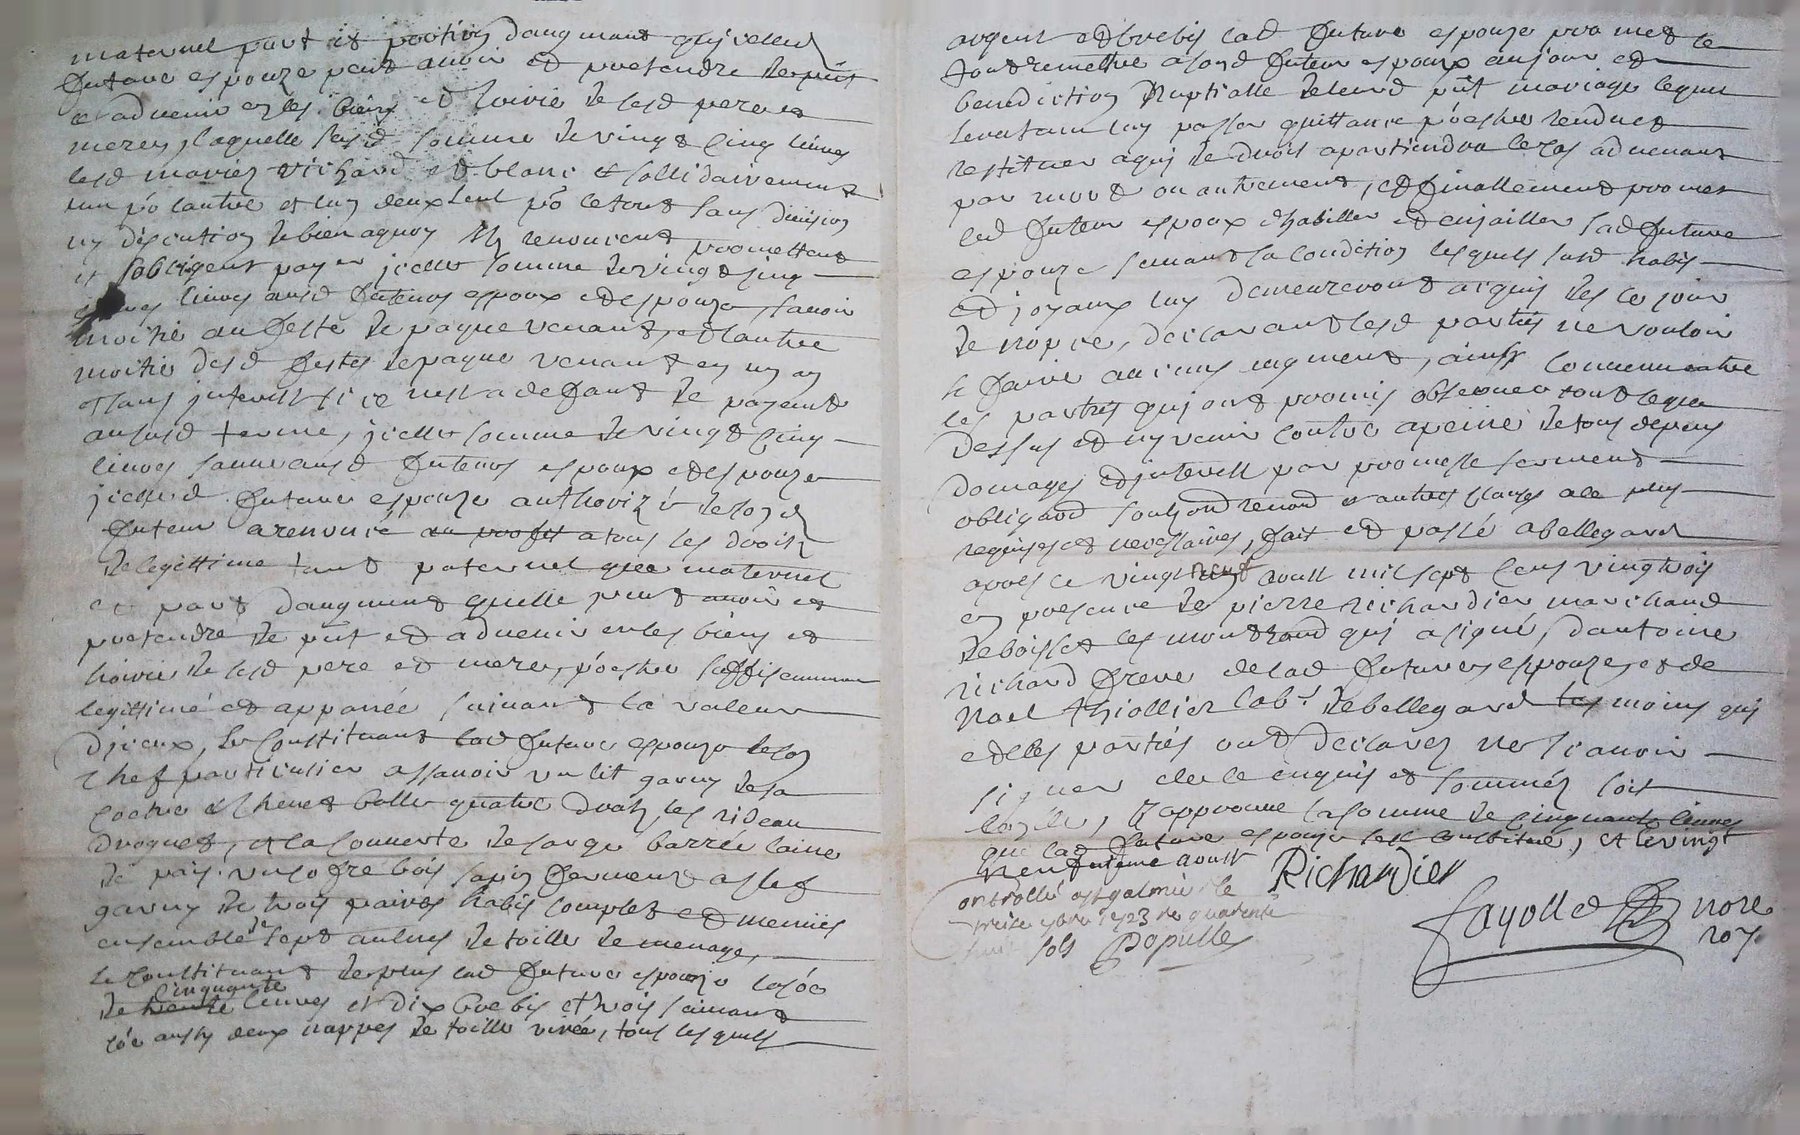 maternel part et portion daugmant qui celled
future espouze peut avoir et pretendre de pnt
et advenir en les biens et hoirie de sesd pere et
mere, laquelle susd somme de vingt cinq livres
lesd mariez richard et blanc et sollidairement
lun po lautre et lun deux seul po le tout sans division
ny discution de bien aquoy ils renoncent promettent
et sobligent payer jcelle somme de vingt cinq
livres ausd futeurs espoux et espouze, scavoir
moitié au feste de paque venant, et lautre
moitié desd festes de paque venant en un an
et sans jnterest si ce nest a defaut de payemt
aususd terme, jcelle somme de vingt cinq
livres sauve ausd futeurs espoux et espouze
jcelled future espouze authorizée de sond
futeur a renoncé au profit a tous les droits
de legittime tant paternel que maternel
et part daugment quelle peut avoir et
pretendre de pnt et advenir en les biens et
hoirie de sesd pere et mere, po estre suffisemment
legittimé et appanée suivant la valeur
djceux, se constituant lad future espouze de son
chef particulier assavoir un lit garny de sa
coetre et chevet balle quatre draps, les rideau
droguet, et la couverte de sarge barrée laine
de pais, un cofre bois sapin fermant a clef
garny de trois paires habis complet et menüs
ensemble de sept aulnes de toille de menage,
se constituant de plus lad future espouze lasoe
de trente cinquante livres et dix brebis et trois suivant
coe aussy deux nappes de toille virée, tous lesquels
argent et brebis lad future espouze promet le
tout remettre a sond futeur espoux au jour et
benediction nuptialle de leurd pnt mariage lequel
sera tenu luy passer quittance po estre rendue et
restituer a qui de droit apartiendra le cas advenant
par mort ou autrement, et finallement promet
led futeur espoux dhabiller et enjoailler sad future
espouze suivant sa condition lesquels susd habis
et joyaux luy demeureront acquis des ce jour
de nopce, declarant lesd parties ne vouloir
se faire aucuns augment, ainsy convenu entre
les parties qui ont promis observer tout ce que
dessus et ny venir contre a peine de tous depens
domages et jnterest par promesse serment
obligaond soubzond renond et autres clauses a ce plus
requises et necessaires, fait et passé a bellegard
apres ce vingt neuf aoust mil sept cens vingt trois
en presence de pierre richardier marchand
de boisset les montrond qui a signé, dantoine
richard frere de lad future espouze, et de
Noel thiollier labr de bellegard tesmoins qui
et elles parties ont declarez ne scavoir
signer de ce enquis et sommez soit
, et approuve la somme de cinquante livres
que lad future espouze sest constitué, et le vingt
neufvieme aoust
Richardier
Controllé a st galmier le
treize 1723 re quarente
sols Populle
Fayolle nore
roy.